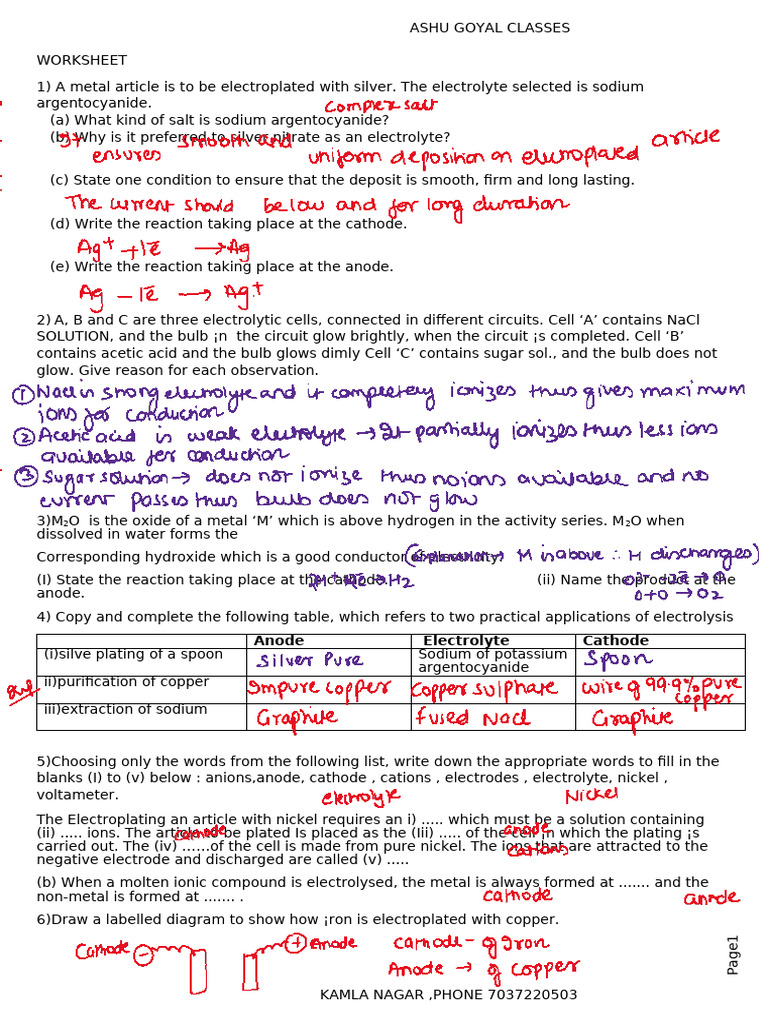 ASHU GOYAL CLASSES
WORKSHEET
1) A metal article is to be electroplated with silver. The electrolyte selected is sodium
argentocyanide.
complex salt
(a) What kind of salt is sodium argentocyanide?
(b) Why is it preferred to silver nitrate as an electrolyte?
It ensures smooth and uniform deposition on electroplated article
(c) State one condition to ensure that the deposit is smooth, firm and long lasting.
The current should below and for long duration
(d) Write the reaction taking place at the cathode.
Ag⁺ + 1ē → Ag
(e) Write the reaction taking place at the anode.
Ag − 1ē → Ag⁺
2) A, B and C are three electrolytic cells, connected in different circuits. Cell ‘A’ contains NaCl
SOLUTION, and the bulb ¡n the circuit glow brightly, when the circuit ¡s completed. Cell ‘B’
contains acetic acid and the bulb glows dimly Cell ‘C’ contains sugar sol., and the bulb does not
glow. Give reason for each observation.
① Nacl is strong electrolyte and it completely ionizes thus gives maximum
ions for conduction
② Acetic acid is weak electrolyte → It partially ionizes thus less ions
available for conduction
③ Sugar solution → does not ionize thus no ions available and no
current passes thus bulb does not glow
3)M₂O is the oxide of a metal ‘M’ which is above hydrogen in the activity series. M₂O when
dissolved in water forms the
Corresponding hydroxide which is a good conductor of electricity.
M is above ∴ H discharges)
(I) State the reaction taking place at the cathode. (ii) Name the product at the
anode.
→ H₂
O+O → O₂
4) Copy and complete the following table, which refers to two practical applications of electrolysis
Anode Electrolyte Cathode
(i)silve plating of a spoon Silver Pure Sodium of potassium argentocyanide Spoon
ii)purification of copper Impure copper Copper sulphate wire of 99.9% pure copper
iii)extraction of sodium Graphite fused Nacl Graphite
5)Choosing only the words from the following list, write down the appropriate words to fill in the
blanks (I) to (v) below : anions,anode, cathode , cations , electrodes , electrolyte, nickel ,
voltameter.
electrolyte Nickel
The Electroplating an article with nickel requires an i) ..... which must be a solution containing
(ii) ..... ions. The article to be plated Is placed as the (Iii) ..... of the cell ¡n which the plating ¡s
cathode anode
carried out. The (iv) ......of the cell is made from pure nickel. The ions that are attracted to the
cations
negative electrode and discharged are called (v) .....
(b) When a molten ionic compound is electrolysed, the metal is always formed at ....... and the
non-metal is formed at ....... .
cathode anode
6)Draw a labelled diagram to show how ¡ron is electroplated with copper.
Cathode − + Anode cathode - of Iron
Anode → of copper
Page1
KAMLA NAGAR ,PHONE 7037220503